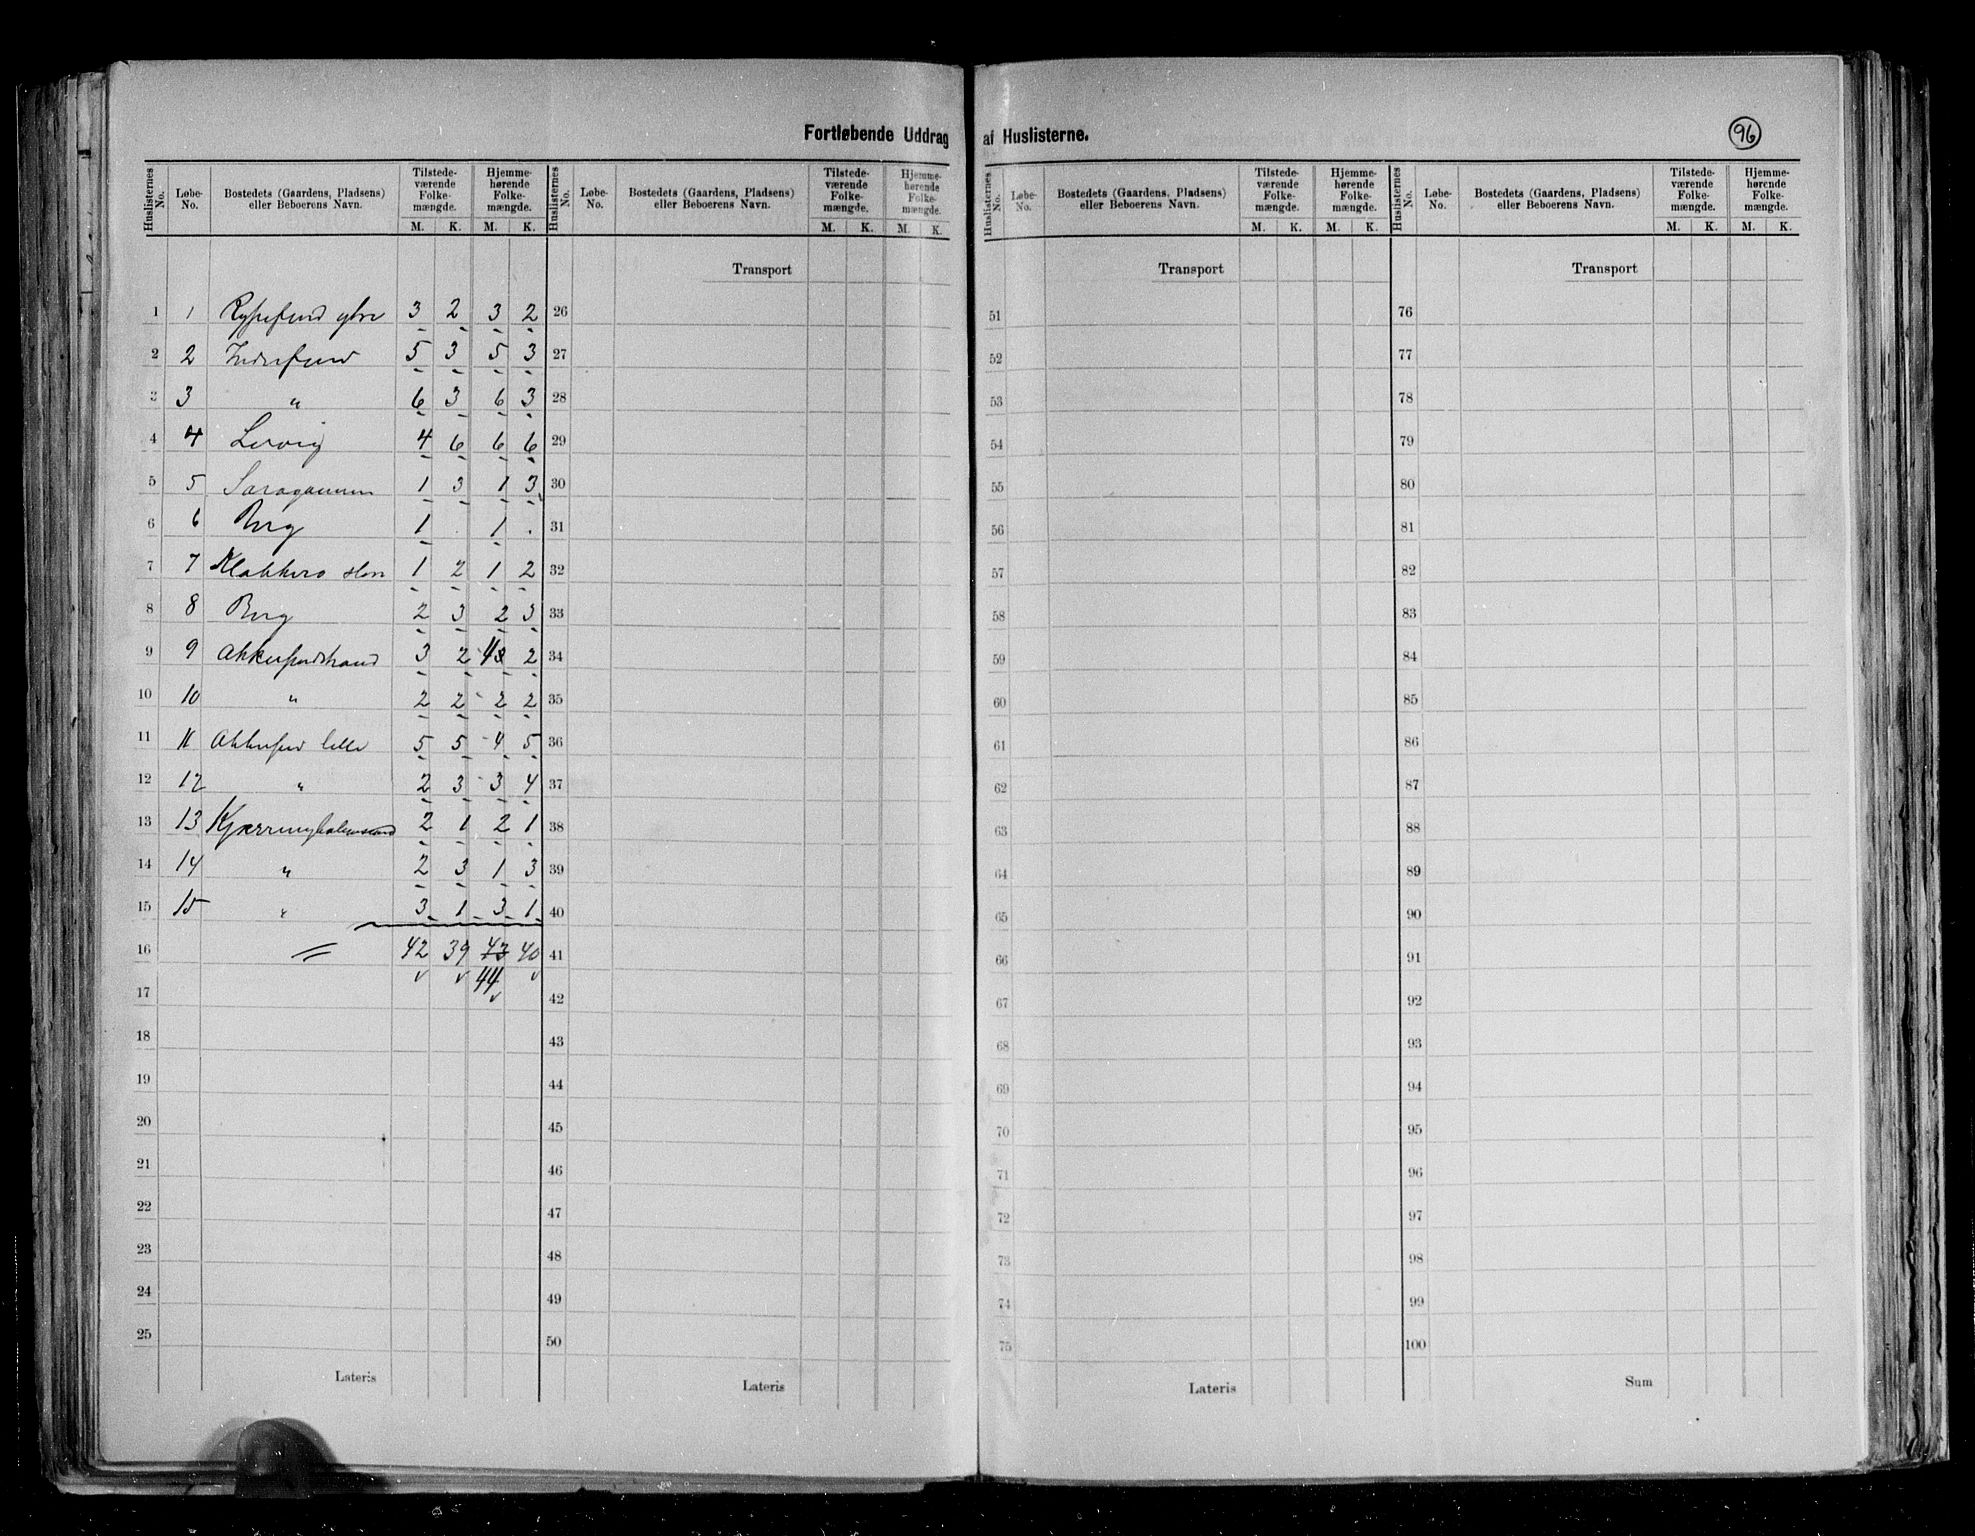 Fortløbende Uddrag af Huslisterne.
96
Huslisternes No. | Løbe-No. | Bostedets (Gaardens, Pladsens) eller Beboerens Navn. | Tilstedeværende Folkemængde. M. K. | Hjemmehørende Folkemængde. M. K.
Huslisternes No. | Løbe-No. | Bostedets (Gaardens, Pladsens) eller Beboerens Navn. | Tilstedeværende Folkemængde. M. K. | Hjemmehørende Folkemængde. M. K.
Huslisternes No. | Løbe-No. | Bostedets (Gaardens, Pladsens) eller Beboerens Navn. | Tilstedeværende Folkemængde. M. K. | Hjemmehørende Folkemængde. M. K.
Huslisternes No. | Løbe-No. | Bostedets (Gaardens, Pladsens) eller Beboerens Navn. | Tilstedeværende Folkemængde. M. K. | Hjemmehørende Folkemængde. M. K.
Transport Transport Transport
1 1 Rypefjord ytre 3 2 3 2 26 51 76
2 2 Indrefjord 5 3 5 3 27 52 77
3 3 " 6 3 6 3 28 53 78
4 4 Lervig 4 6 6 6 29 54 79
5 5 1 3 1 3 30 55 80
6 6 Berg 1 . 1 . 31 56 81
7 7 1 2 1 2 32 57 82
8 8 Berg 2 3 2 3 33 58 83
9 9 Akkerfjordstrand 3 2 4 2 34 59 84
10 10 " 2 2 2 2 35 60 85
11 11 Akkerfjord lille 5 5 4 5 36 61 86
12 12 " 2 3 3 4 37 62 87
13 13 Kjærringholmsund 2 1 2 1 38 63 88
14 14 " 2 3 1 3 39 64 89
15 15 " 3 1 3 1 40 65 90
16 42 39 43 40 41 66 91
17 44 42 67 92
18 43 68 93
19 44 69 94
20 45 70 95
21 46 71 96
22 47 72 97
23 48 73 98
24 49 74 99
25 50 75 100
Lateris Lateris Lateris Sum